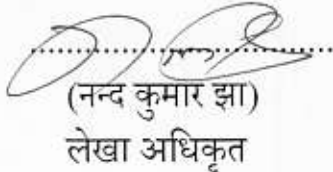 (नन्द कुमार झा)
लेखा अधिकृत